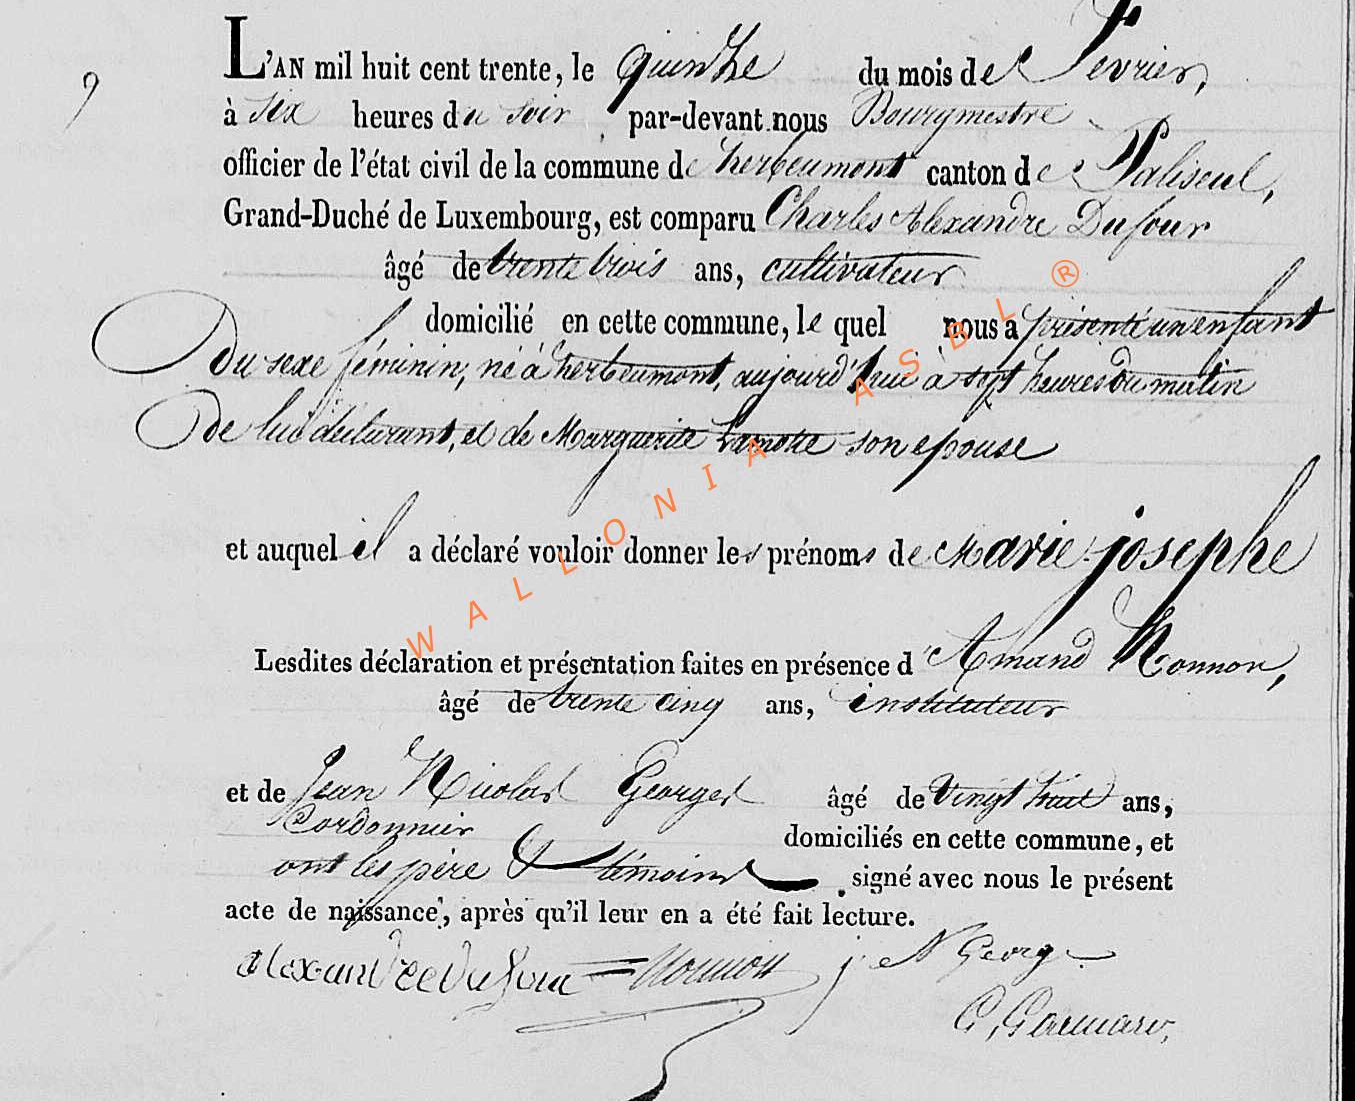 9
L'AN mil huit cent trente, le quinze du mois de Fevrier,
à six heures du soir, par-devant nous Bourgmestre
officier de l'état civil de la commune de herbeumont canton de Paliseul,
Grand-Duché de Luxembourg, est comparu Charles Alexandre Dufour
âgé de trente trois ans, cultivateur
domicilié en cette commune, le quel nous a présenté un enfant
Du sexe féminin, né à herbeumont, aujourd'hui à sept heures du matin
De lui déclarant, et de Marguerite Lamotte son epouse
et auquel il a déclaré vouloir donner les prénoms de Marie josephe
Lesdites déclaration et présentation faites en présence d'Amand Monnon,
âgé de trente cinq ans, instituteur
et de Jean Nicolas Georges âgé de Vingt huit ans,
Cordonnier domiciliés en cette commune, et
ont les père & témoins signé avec nous le présent
acte de naissance, après qu'il leur en a été fait lecture.
alexandre Dufour Monnon j N George
WALLONIA ASBL ®